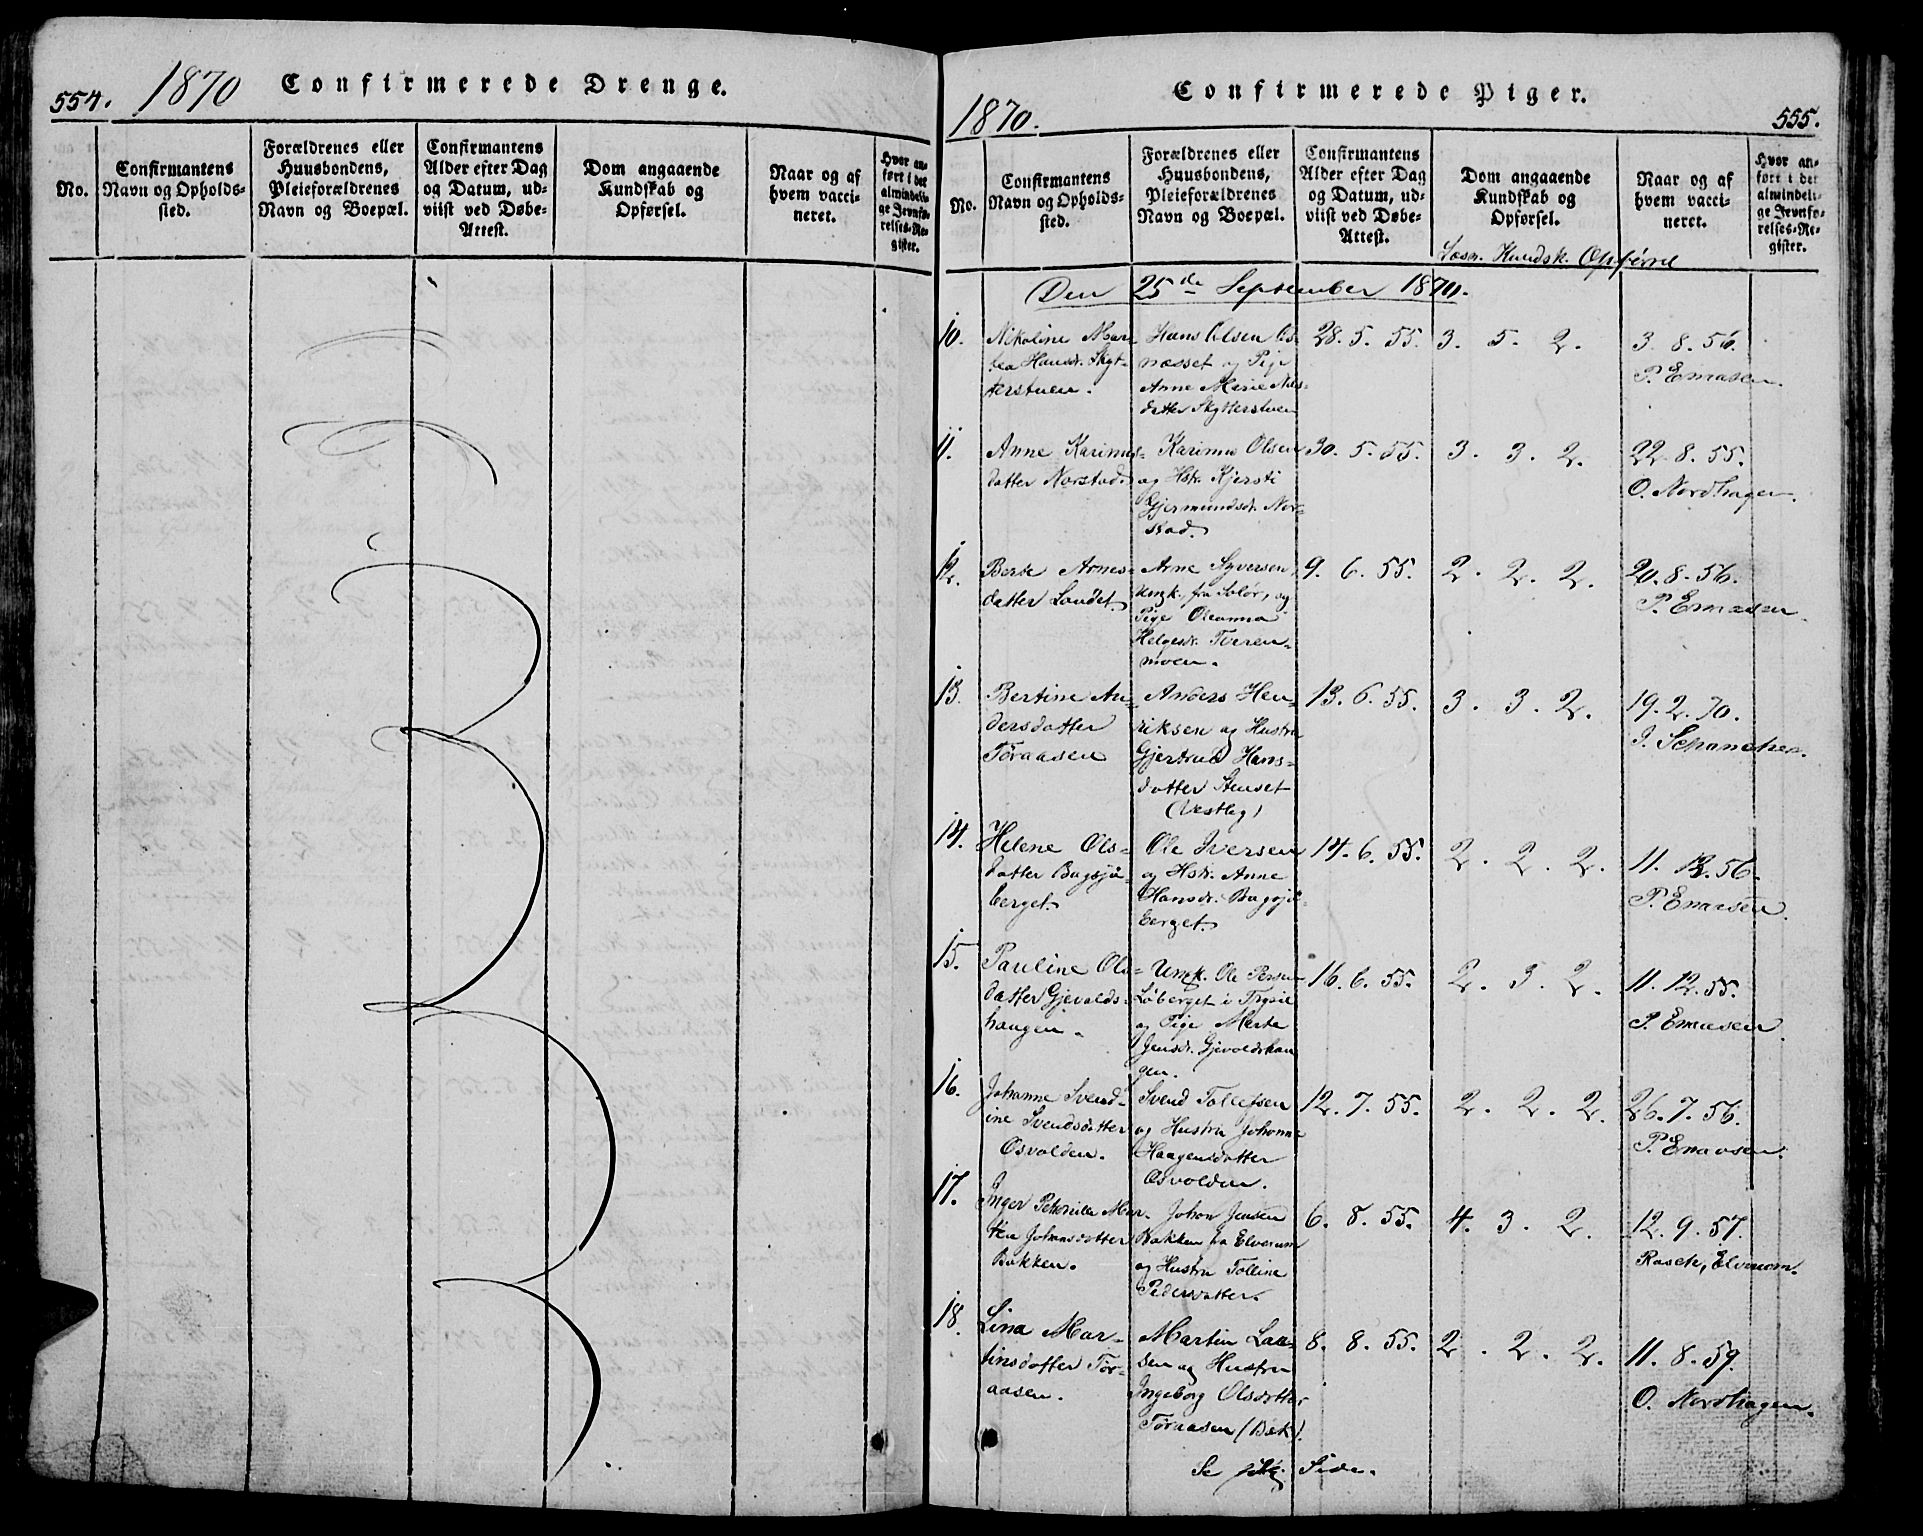 554. 1870 Confirmerede Drenge.
No.
Confirmantens
Navn og Opholds-
sted.
Forældrenes eller
Huusbondens,
Pleieforældrenes
Navn og Boepæl.
Confirmantens
Alder efter Dag
og Datum, ud-
viist ved Døbe-
Attest.
Dom angaaende
Kundskab og
Opførsel.
Naar og af
hvem vacci-
neret.
Hvor an-
ført i det
almindeli-
ge Jevnfø-
relses-Re-
gister.
Confirmerede Piger.
1870. 555.
No.
Confirmantens
Navn og Opholds-
sted.
Forældrenes eller
Huusbondens,
Pleieforældrenes
Navn og Boepæl.
Confirmantens
Alder efter Dag
og Datum, ud-
viist ved Døbe-
Attest.
Dom angaaende
Kundskab og
Opførsel.
Læsn. Kundsk. Opførsel
Naar og af
hvem vacci-
neret.
Hvor an-
ført i det
almindeli-
ge Jevnfø-
relses-Re-
gister.
Den 25de September 1870.
10.
Nikoline Mar-
tea Hansdr. Skyt-
terstuen.
Hans Olsen Os-
næsset og Pige
Anne Marie Nils-
datter Skytterstuen
28. 5. 55.
3. 5. 2.
3. 8. 56.
P. Emasen.
11.
Anne Karinus-
datter Norstad.
Karinus Olsen
og Hstr. Kjersti
Gjermundsdr. Nor-
stad.
30. 5. 55.
3. 3. 2.
22. 8. 55.
O. Nordhagen.
12.
Berte Arnes-
datter Landet.
Arne Syversen,
Ungk. fra Solør, og
Pige Oleanna
Helgesdr. Tveren-
moen.
9. 6. 55.
2. 2. 2.
20. 8. 56.
P. Emasen.
13.
Bertine An-
dersdatter
Tøraasen
Anders Hen-
riksen og Hustru
Gjertrud Hans-
datter Stenset
(Vestby)
13. 6. 55.
3. 3. 2.
19. 2. 70.
J. Schanche.
14.
Helene Ols-
datter Bugsjø-
berget.
Ole Iversen
og Hstr. Anne
Hansdr. Bugsjø-
berget.
14. 6. 55.
2. 2. 2.
11. 12. 56.
P. Emasen.
15.
Pauline Ols-
datter Gjevolds-
haugen.
Ungk. Ole Persen
Løberget i Trysil
og Pige Marte
Jensdr. Gjevoldshau
gen.
16. 6. 55.
2. 3. 2.
11. 12. 55.
P. Emasen.
16.
Johanne Svend-
ine Svendsdatter
Osvolden.
Svend Tollefsen
og Hustru Johanne
Haagensdatter
Osvolden.
12. 7. 55.
2. 2. 2.
26. 7. 56.
P. Emasen.
17.
Inger Petronille Mar-
tea Johansdatter
Bakken.
Johan Jensen
Bakken fra Elverum
og Hustru Tolline
Pedersdatter.
6. 8. 55.
4. 3. 2.
12. 9. 57.
Rasch, Elverum.
18.
Lina Mar-
tinsdatter Tør-
aasen.
Martin Lar-
sen og Hustru
Ingeborg Olsdatter
Tøraasen (Bæk).
8. 8. 55.
2. 2. 2.
11. 8. 59.
O. Nordhagen.
Se Side.